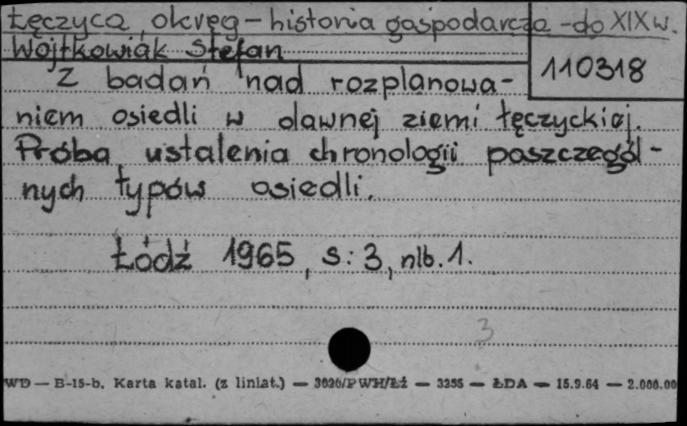 Łęczyca, okręg – historia gospodarcza – do XIX w.
Wojtkowiak Stefan
110318
Z badań nad rozplanowa-
niem osiedli w dawnej ziemi łęczyckiej.
Próba ustalenia chronologii poszczegól-
nych typów osiedli.
Łódź 1965, s: 3, nlb. 1.
3
WD — B-15-b. Karta katal. (z liniat.) — 3020/PWH/Łź — 3255 — ŁDA — 15.9.64 — 2.000.00